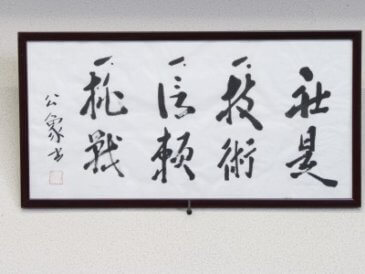 社是
一、技術
一、信頼
一、挑戦
公象書